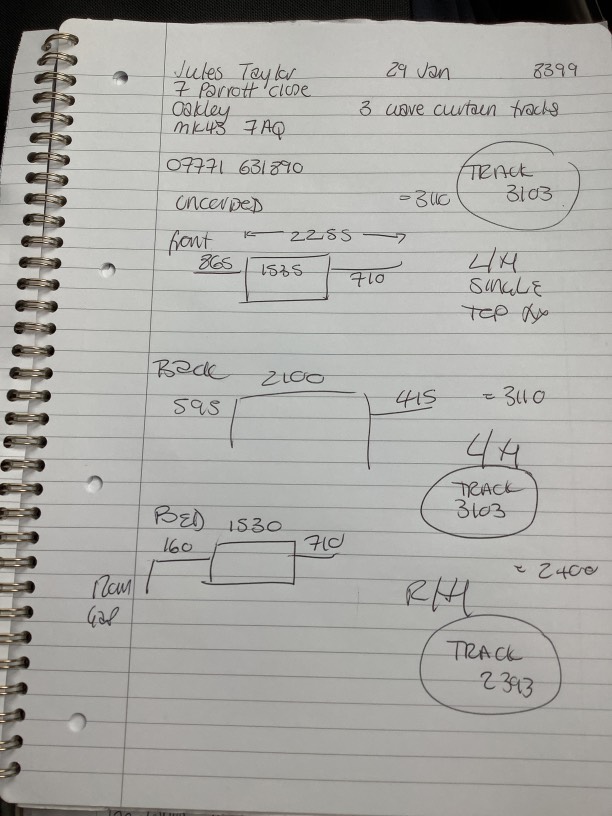 Jules Taylor 29 Jan 8399
7 Parrott close
Oakley 3 wave curtain tracks
MK43 7AQ
07771 631890
TRACK
3103
uncorded =3110
front 2255
865 1535 710
L/H
SINGLE
TOP fix
Back 2100
595 415 = 3110
L/H
TRACK
3103
BED 1530
160 710
= 2400
R/H
TRACK
2393